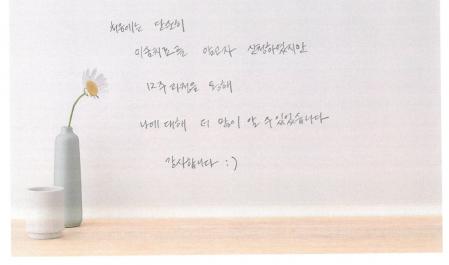 처음에는 단순히
알고자 신청하였지만
12주 과정을 통해
나에 대해 더 많이 알 수 있었습니다
감사합니다 :)